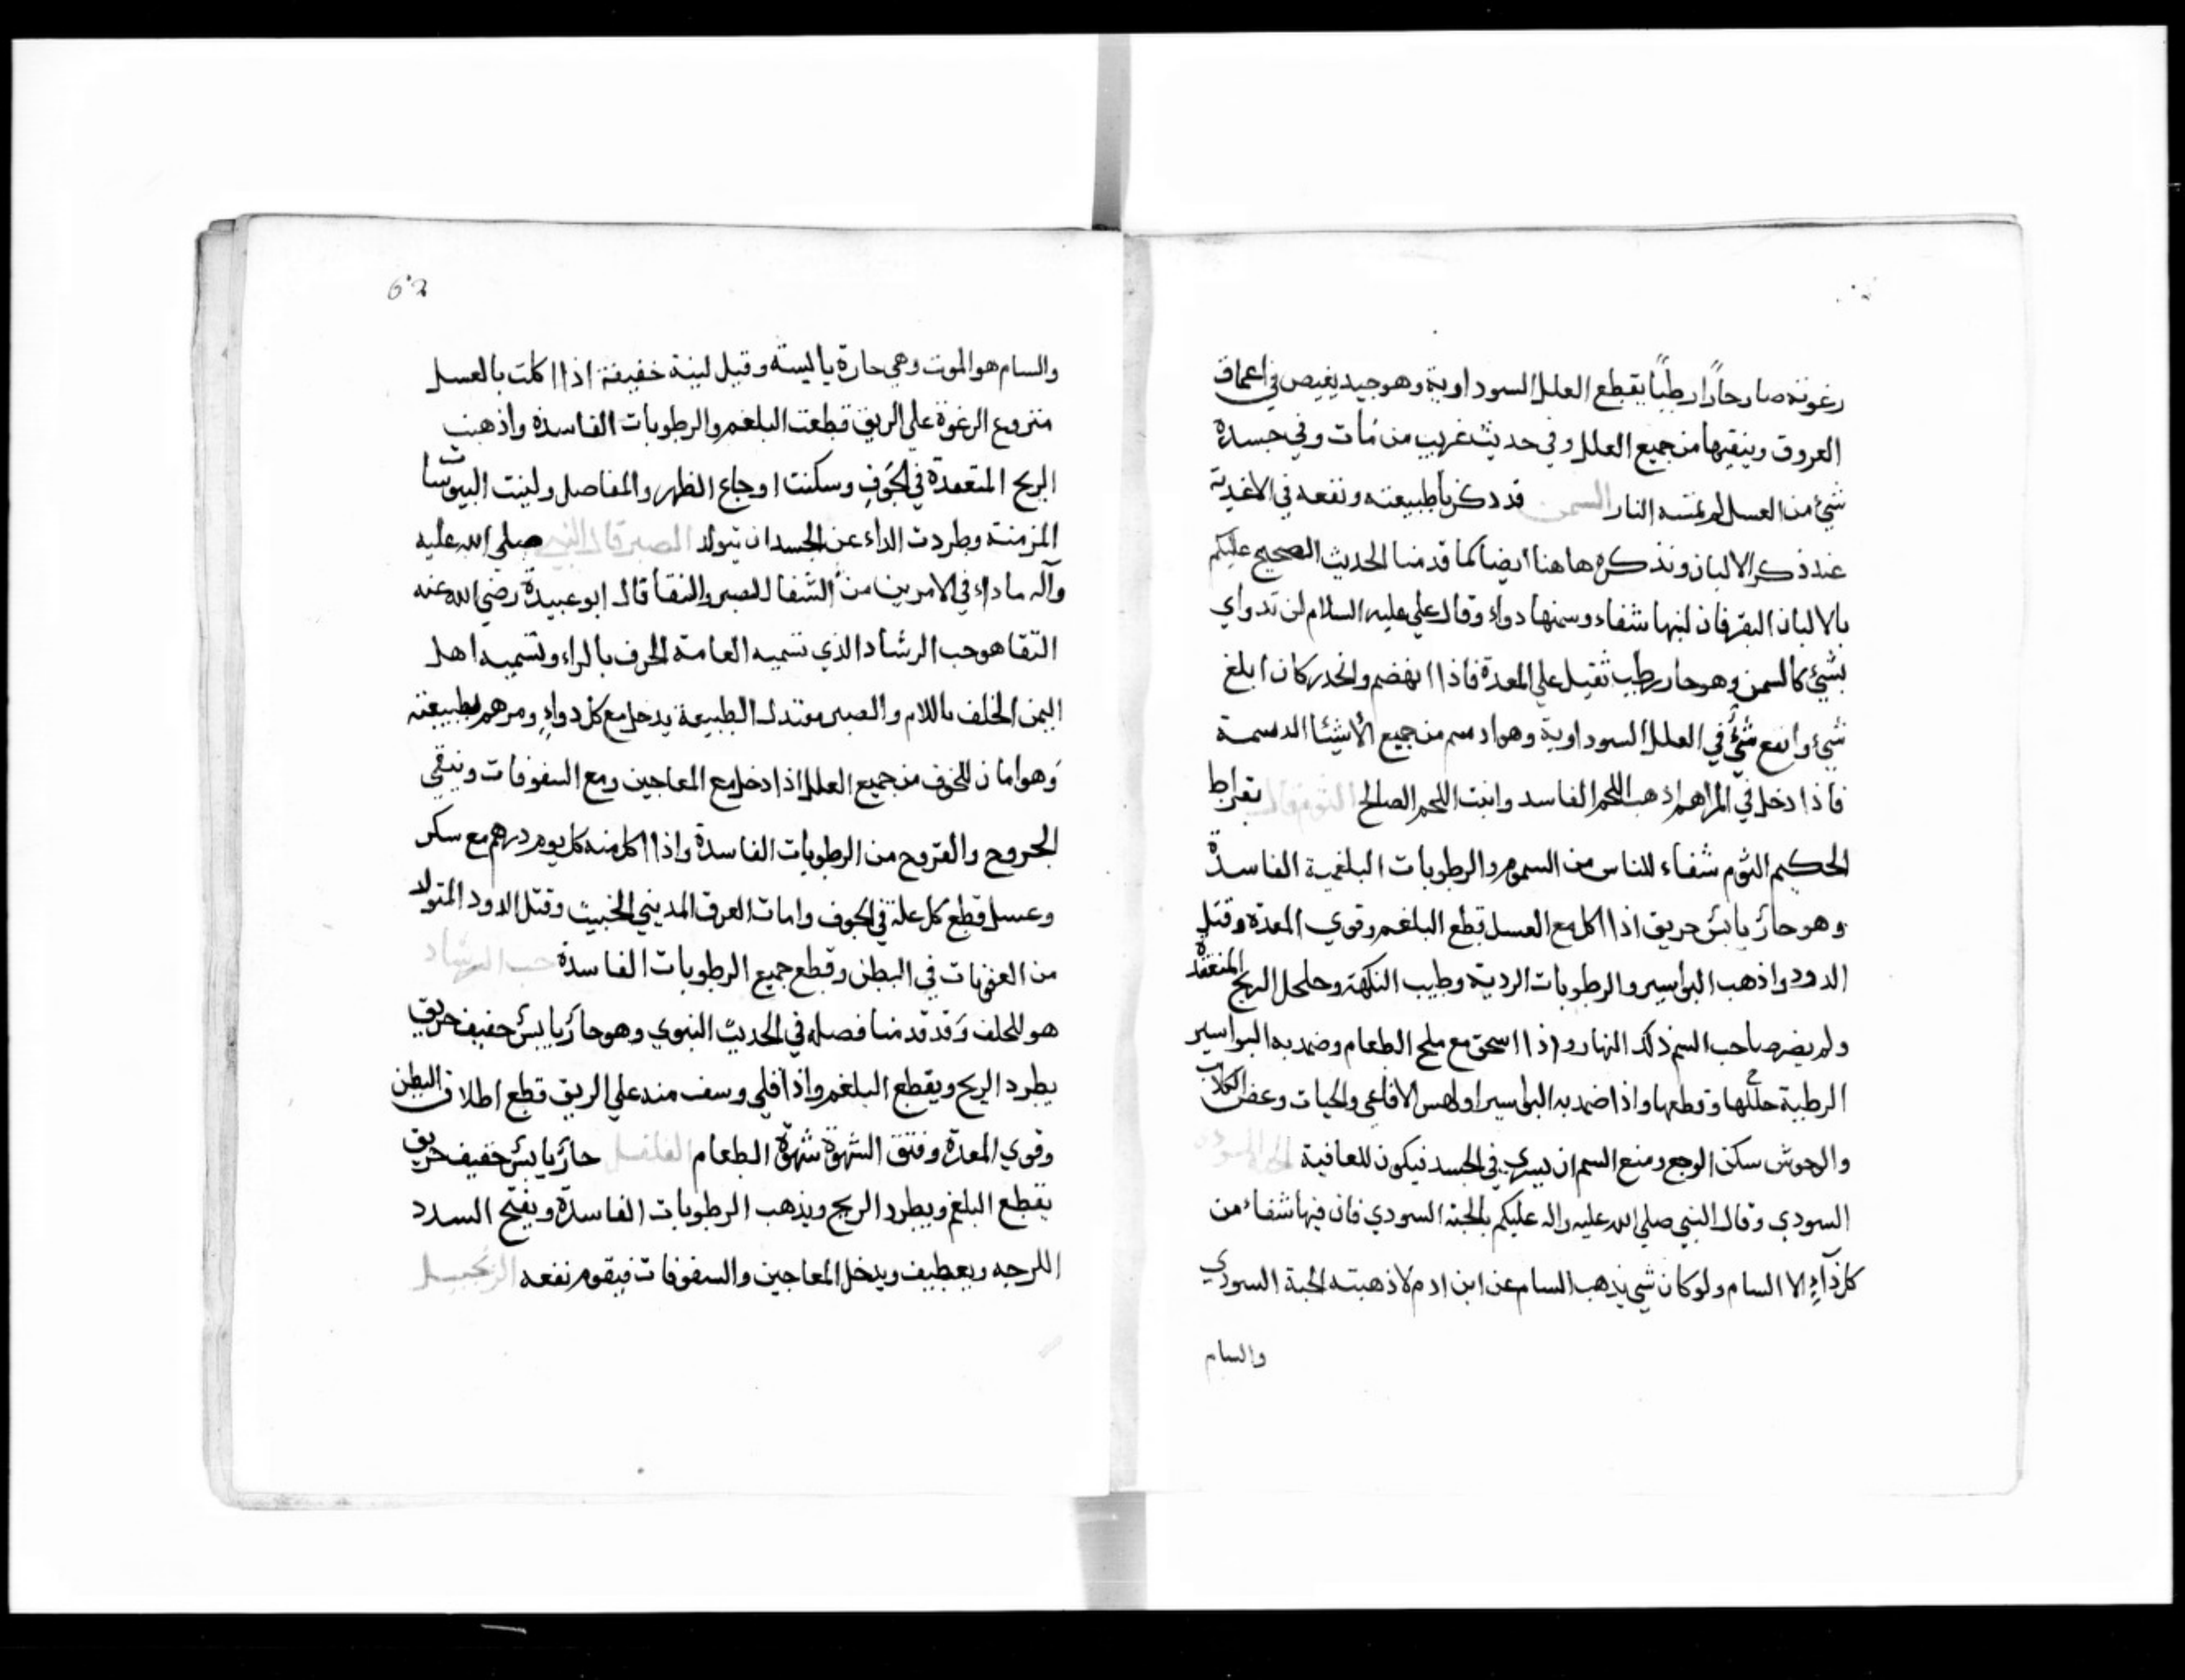 رغوته صار حارًا رطبًا يقطع العلل السوداوية وهو جيد يغيص في اعماق
العروق وينقيها من جميع العلل وفي حديث غريب من مات وفي جسده
شيئ من العسل لم تمسه النار السمن قد ذكرنا طبيعته ونفعه في الاغذية
عند ذكر الالبان ونذكره هاهنا ايضا كما قدمنا الحديث الصحيح عليكم
بالالبان البقر فان لبنها شفاء وسمنها دواء وقال علي عليه السلام لن تدواي
بشيئ كالسمن وهو حار رطب ثقيل علي المعدة فاذا انهضم وانحدر كان ابلغ
شيئ وانفع شيئ في العلل السوداوية وهو ادسم من جميع الأشيئا الدسمة
فاذا دخل في المراهم اذهب اللحم الفاسد وانبت اللحم الصالح الثوم قال بقراط
الحكيم الثوم شفاء للناس من السموم والرطوبات البلغمية الفاسدة
وهو حار يابس حريق اذا اكل مع العسل قطع البلغم وقوي المعدة وقتل
الدود واذهب البواسير والرطوبات الردية وطيب النكهة وحلحل الريح المنعقدة
ولم يضر صاحب السم ذلك النهار واذا اسحق مع ملح الطعام وضمد به البواسير
الرطبة حللها وقطعها واذا ضمد به البواسير اولهس الافاعي والحيات وعض الكلاب
والوحوش سكن الوجع ومنع السم ان يسري في الجسد فيكون للعافية الحبة السودي
السودي وقال النبي صلي الله عليه واله عليكم بالحبة السودي فان فيها شفاء من
كل دآءٍ الا السام ولو كان شي يذهب السام عن ابن ادم لاذهبته الحبة السودي
والسام
62
والسام هو الموت وهي حارة ياليسة وقيل لينة خفيفة اذا اكلت بالعسل
منزوع الرغوة علي الريق قطعت البلغم والرطوبات الفاسدة واذهبت
الريح المتعقدة في الجوف وسكنت اوجاع الظهر والمفاصل ولينت اليبوسات
المزمنة وطردت الداء عن الجسد ان يتولد الصبر قال النبي صلي الله عليه
وآله ماذا في الامرين من الشفا الصبر والثقا قال ابو عبيدة رضي الله عنه
الثقا هو حب الرشاد الذي تسميه العامة الحرف بالراء وتسميه اهل
اليمن الحلف باللام والصبر معتدل الطبيعة يدخل مع كل دواءٍ ومرهم بطبيعته
وهو امان للخوف من جميع العلل اذا دخل مع المعاجين ومع السفوفات وينقي
الجروح والقروح من الرطوبات الفاسدة واذا اكل منه كل يوم درهم مع سكر
وعسل قطع كل علة في الجوف وامات العرق المديني الخبيث وقتل الدود المتولد
من العفونات في البطن وقطع جميع الرطوبات الفاسدة حب الرشاد
هو للحلف وقد قدمنا فصله في الحديث النبوي وهو حار يابس خفيف حريق
يطرد الريح ويقطع البلغم واذا قلي وسف منه علي الريق قطع اطلاق البطن
وقوي المعدة وفتق الشهوة شهوة الطعام الفلفل حار يابس خفيف حريق
يقطع البلغم ويطرد الريح ويذهب الرطوبات الفاسدة ويفتح السدد
اللزجه ويدخل المعاجين والسفوفات فيقوم نفعه الزنجبيل